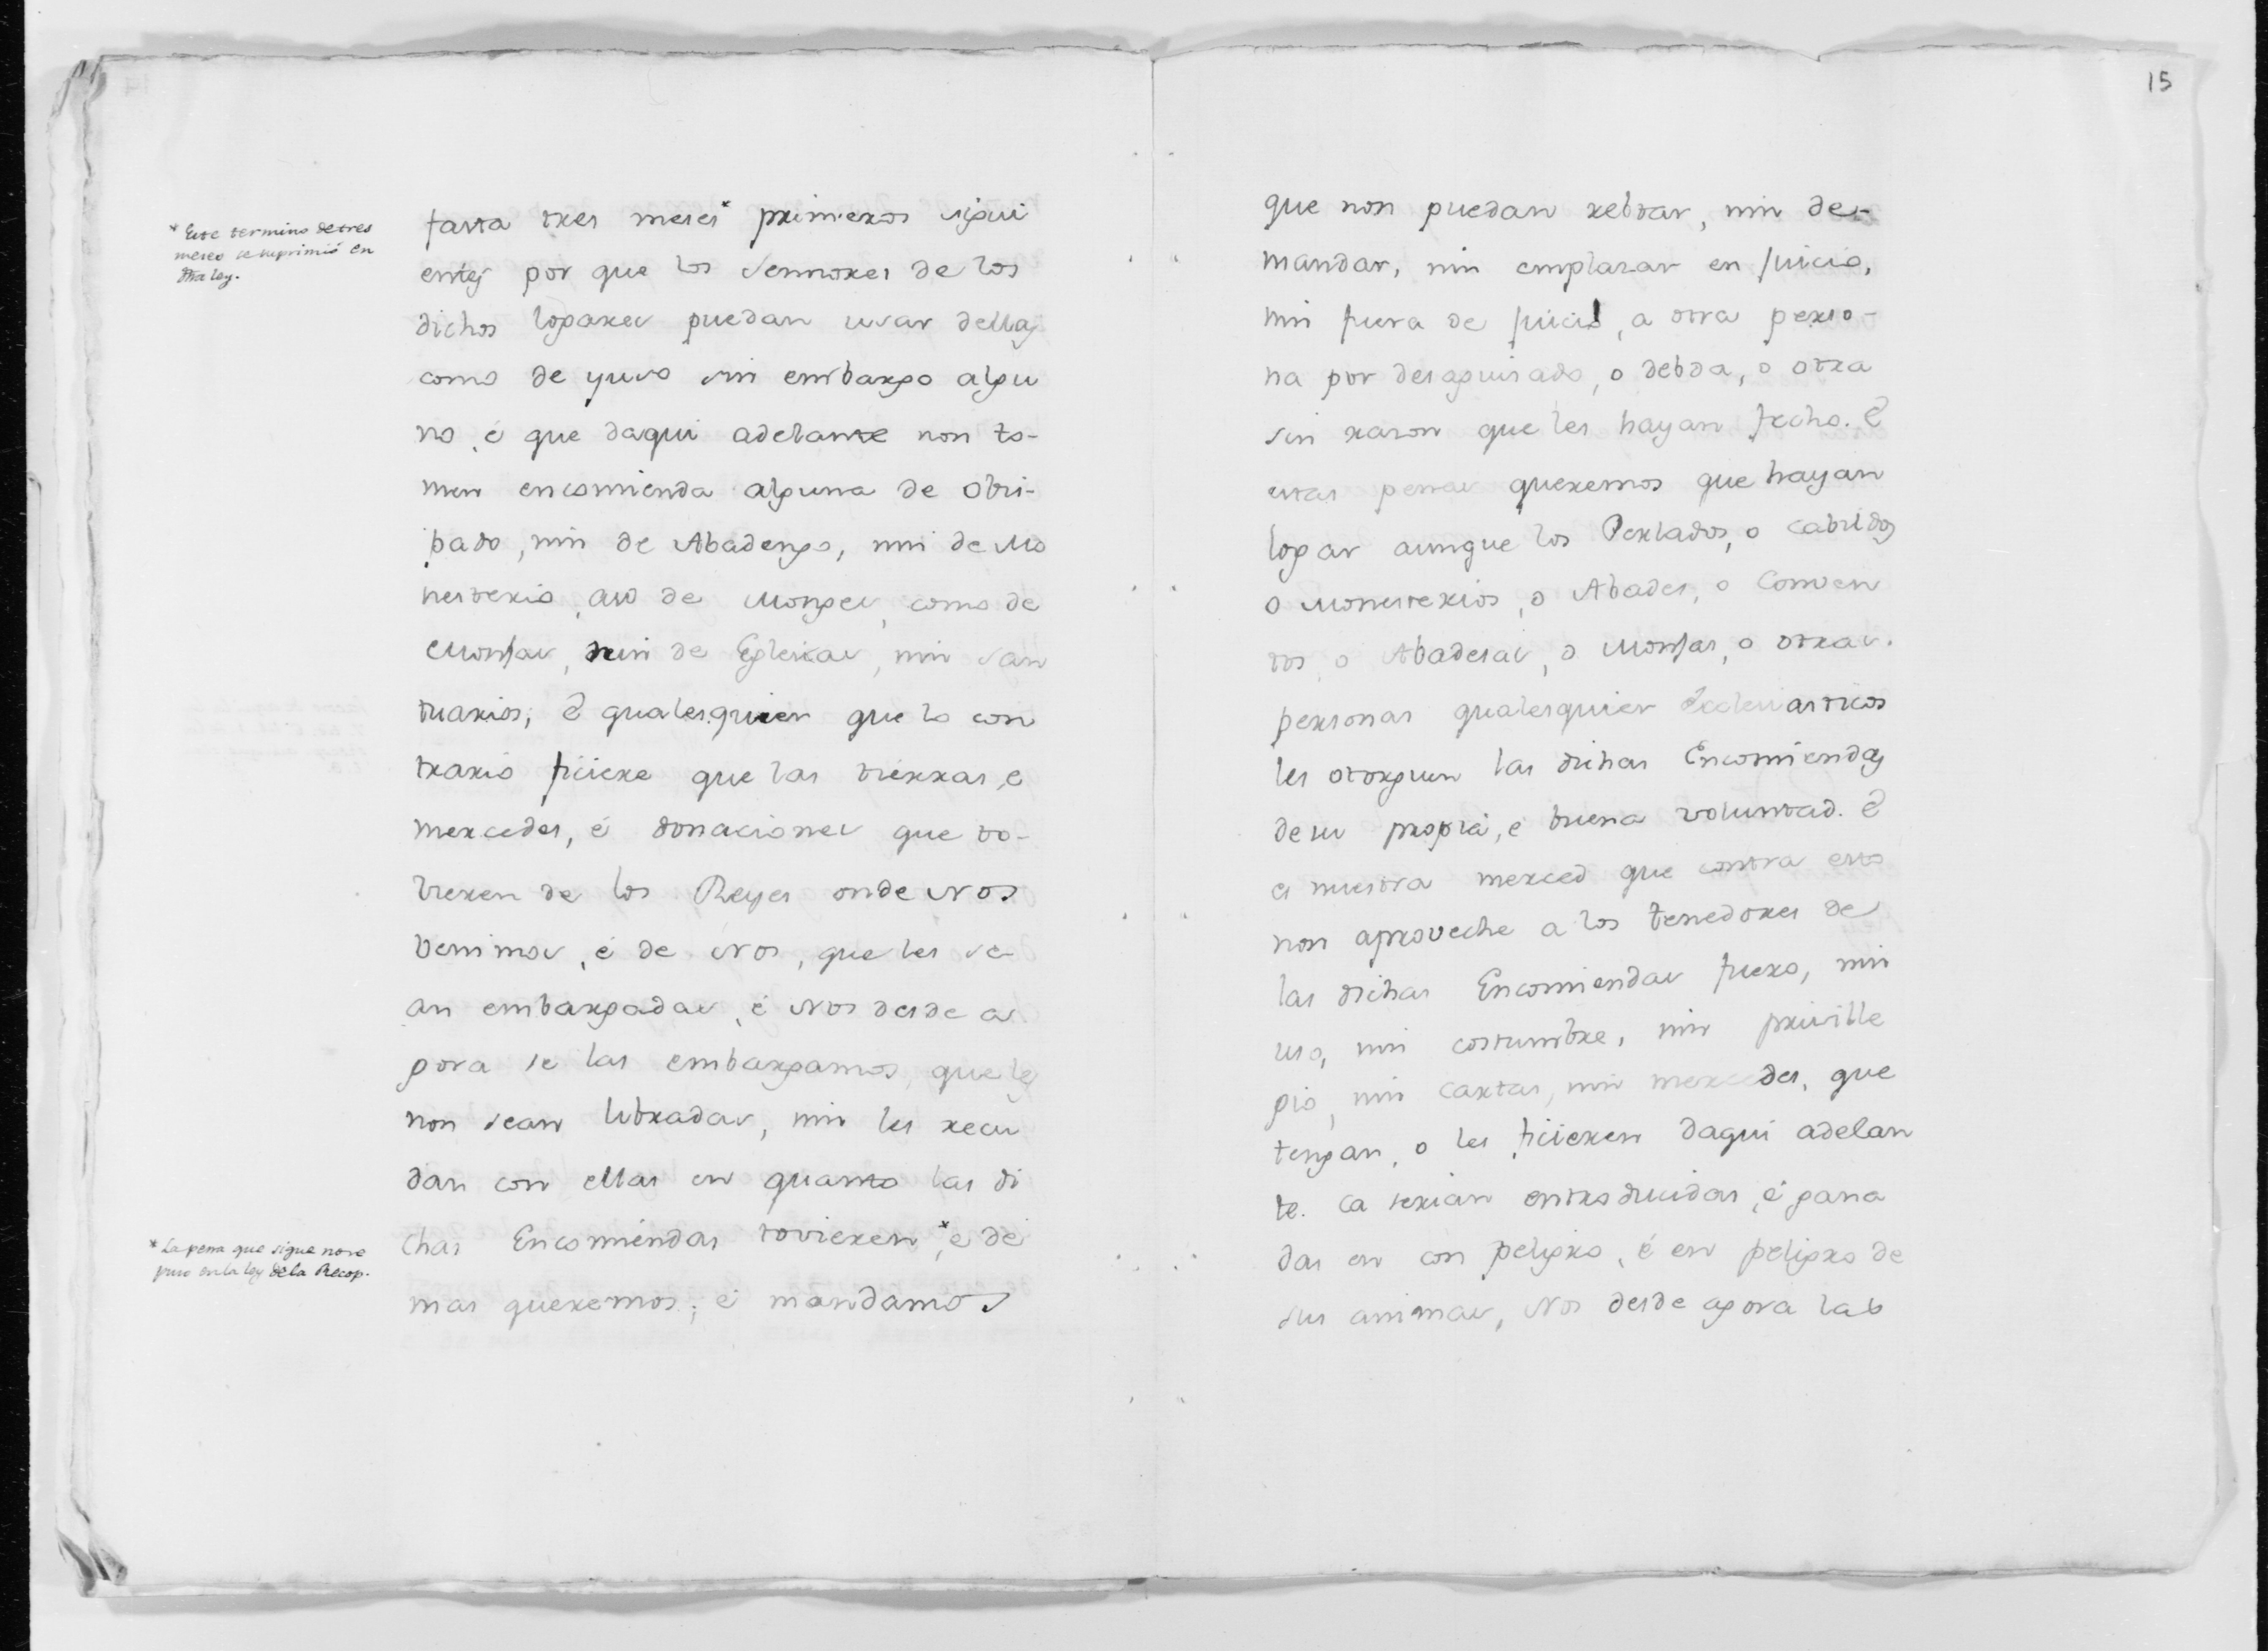 * Este termino de tres
meses se suprimió en
dha ley.
fasta tres meses* primeros sigui
entes por que los sennores de los
dichos logares puedan usar dellas
como de yuso sin embargo algu
no, é que daqui adelante non to-
men encomienda alguna de Obis-
pado, nin de Abadengo, nin de Mo
nesterio, asi de Monges, como de
Monjas, nin de Eglesias, nin san
tuarios; É qualesquier que lo con
trario ficiere que las tierras, e
mercedes, é donaciones que to-
vieren de los Reyes onde Nos
venimos, é de Nos, que les se-
an embargadas, é Nos desde a
gora se las embargamos, que les
non sean libradas, nin les recu
dan con ellas en quanto las di
chas Encomiendas tovieren*, e de
mas queremos; é mandamos
* La pena que sigue no se
puso en la ley de la Recop.
15
que non puedan rebtar, nin de-
mandar, nin emplazar en juicio,
nin fuera de juicio, a otra perso-
na por desaguisado, o debda, o otra
sin razon que les hayan fecho. É
estas penas queremos que hayan
logar aunque los Perlados, o Cabildos
o Monesterios, o Abades, o Conven
tos, o Abadesas, o Monjas, o otras
personas qualesquier Eclesiasticos
les otorguen las dichas Encomiendas
de su propia, é buena voluntad. É
es nuestra merced que contra esto
non aproveche a los tenedores de
las dichas Encomiendas fuero, nin
uso, nin costumbre, nin priville
gio, nin cartas, nin mercedes, que
tengan, o les ficieren daqui adelan
te. Ca serian entroducidas, é gana
das en con peligro, é en peligro de
sus animas, Nos desde agora las